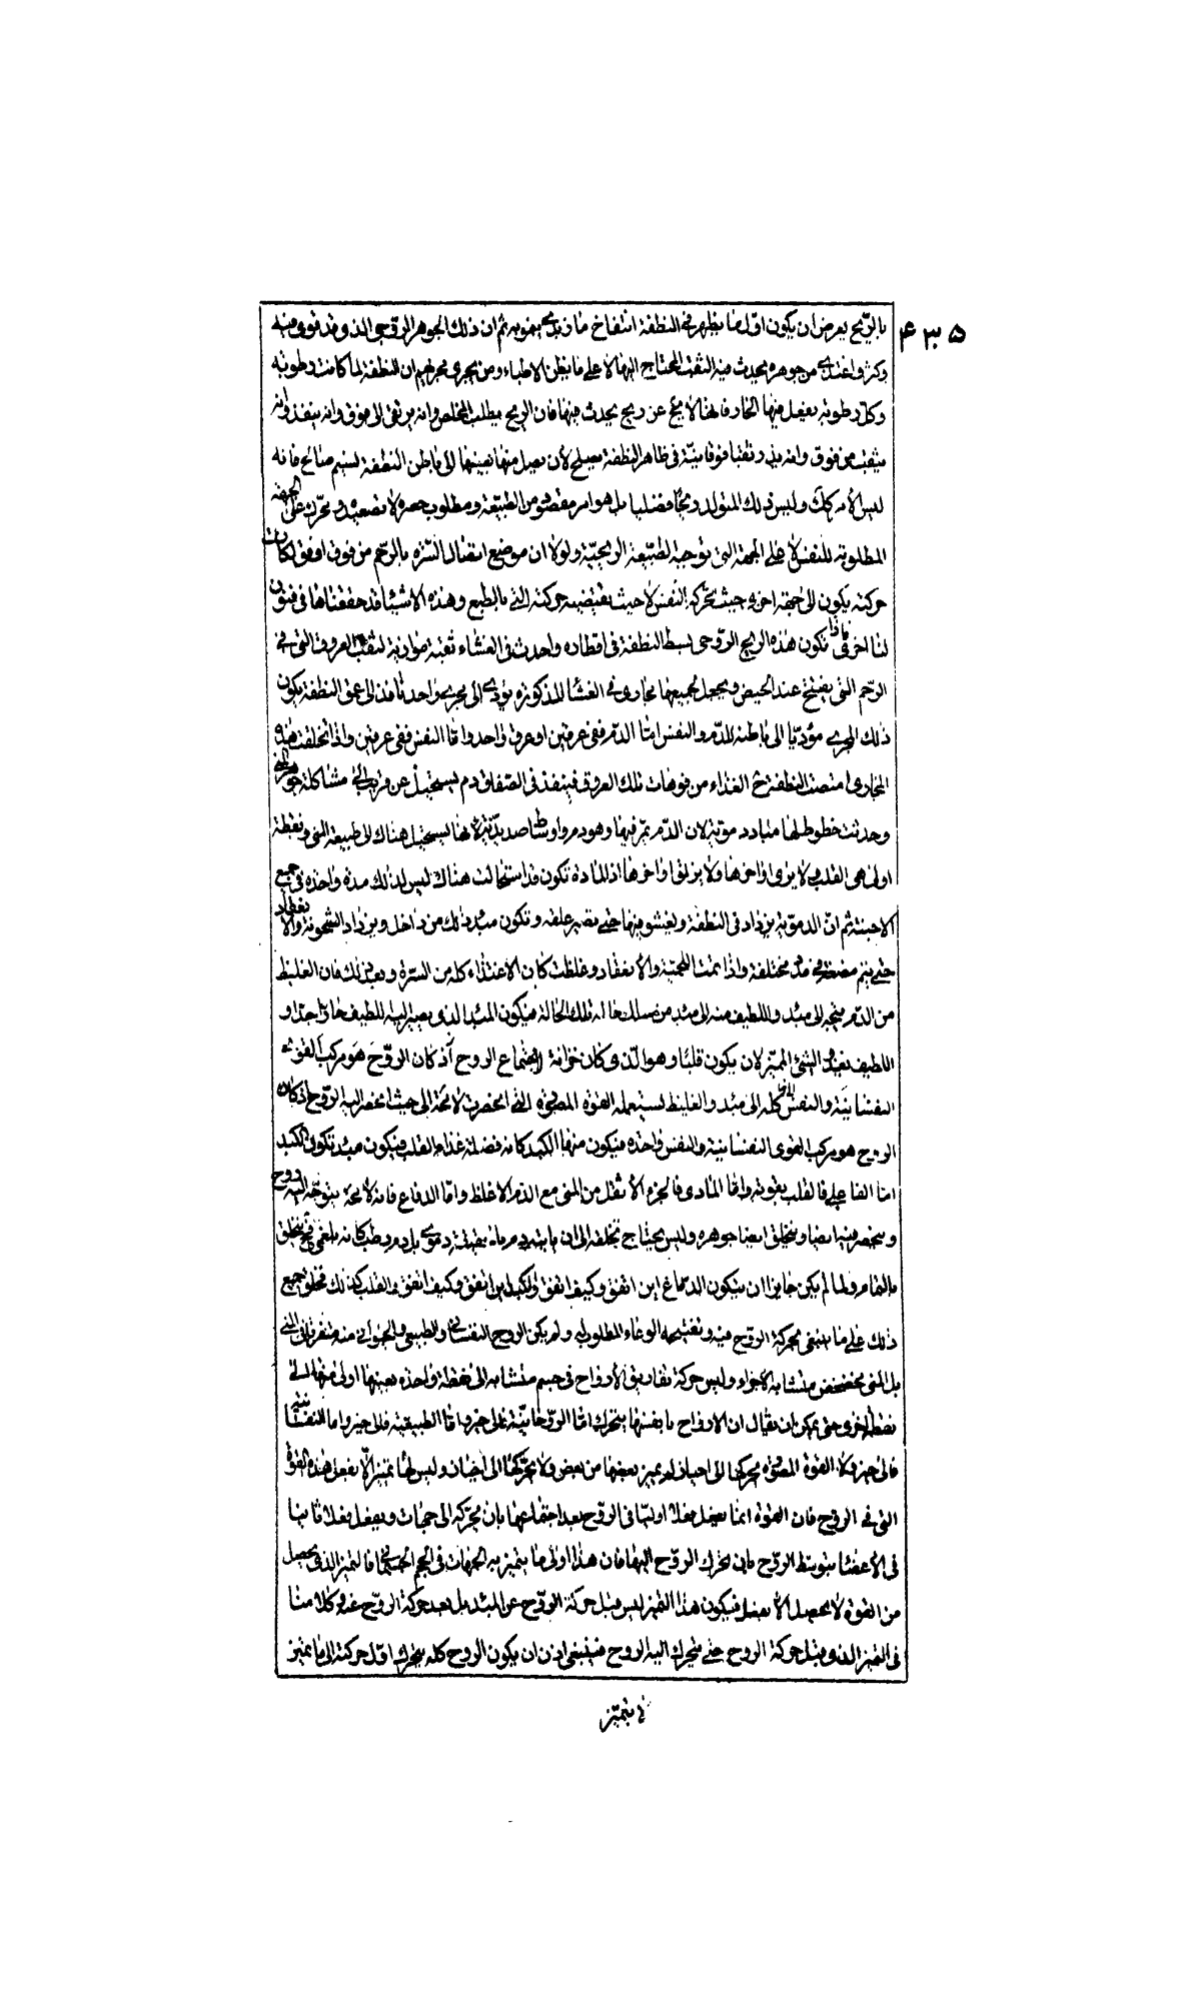 ۴۳۵
بالريح يعرض ان يكون اول ما يظهر فى النطفة انتفاخ ما ثم ان ذلك الجوهر الروحى الذى قد قوى منه
وكثر واغتذى من جوهره يحدث فيه الثقب المحتاج اليها لا على ما يظن الاطباء ومن يجرى مجراهم ان النطفة لما كانت رطوبة
وكل رطوبة يفعل فيها الحار فانها لا تخ عن ريح يحدث فيها فان الريح يطلب المخلص وانه يرتقى الى فوق وانه ينفذ وانه
يثقب من فوق وانه ثقبا فوقانية فى ظاهر النطفة يصلح لان يصل منها بعينها الى باطن النطفة نسيم صالح فانه
ليس الأمر كك وليس ذلك المتولد ريحا فضليا بل هو امر مقصود من الطبيعة ومطلوب حصره لا تصعيده ويحرك على الجهة
المطلوبة للنفس لا على الجهة التى توجبه الطبيعة الريحية ولولا ان موضع اتصال السرة بالرحم من فوق اوفق لكانت
حركته يكون الى جهة اخرى حيث تحركه النفس لا حيث يقتضيه حركته التى بالطبع وهذه الاشياء قد حققناها فى فنون
لنا اخرى فاذا تكون هذه الريح الروحى بسط النطفة فى اقطاره واحدث فى الغشاء ثقبة موازية لثقب العروق التى فى
الرحم التى ينفتح عند الحيض ويجعل لجميعها مجارى فى الغشاء المذكورة يؤدى الى مجرى واحد نافذ الى عمق النطفة يكون
ذلك المجرى مؤديا الى باطنه للدم والنفس اما الدم ففى عرقين او عرق واحد واما النفس ففى عرقين واذا تخلقت هذه
المجارى امتصت النطفة ح الغذاء من فوهات تلك العروق فينفذ فى الصفاق دم يستحيل عن قريب الى مشاكلة جوهر المنى
وحدثت خطوط لها مباد دموية لان الدم تمر فيها وهو دم واوساطها صديدية لانها يستحيل هناك الى طبيعة المنى ونقطة
اولى هى القلب لا يزى اواخرها ولا اواخرها اذ المادة تكون قد استحالت هناك ليس لذلك مدة واحدة فى جميع
الاجنة ثم ان الدموية يزداد فى النطفة ويفشو فيها حتى تصير علقة وتكون مبدء ذلك من داخل ويزداد السخونة والانعقاد
حتى يتم مضغة فى مدد مختلفة واذا تمت اللحمية والانعقاد وغلظت كان الاغتذاء كله من السرة وبعد ذلك فان الغليظ
من الدم يتجه الى مبدء واللطيف منه الى مبدء من مسلك حاله تلك الحالة فيكون المبدء الذى يصير اليه اللطيف حارا جدا و
اللطيف يعيد الشئ المميز لان يكون قلبا وهو الذى كان خزانة لاجتماع الروح اذ كان الروح هو مركب القوى
النفسانية والنفس كله الى مبدء والغليظ يستعمله القوة المصورة التى انحصرت لا محة الى حيث انحصر اليه الروح اذ كان
الروح هو مركب القوى النفسانية والنفس واحدة فيكون منها الكبد كانه فضلة غذاء القلب فيكون مبدء تكون الكبد
اما الفاعلى فالقلب بقوته واما المادى فالجزء الاثقل من المنى مع الدم الاغلظ واما الدماغ فانه لا محة يتوجه اليه روح
وينحصر فيه ايضا ويتخلق ايضا جوهره وليس يحتاج تخلقه الى ان يا تيه دم مادة دموى بل دم رطب كانه بلغمى فح يتخلق
بالتمام ولما لم يكن جايزا ان يتكون الدماغ اين اتفق وكيف اتفق والكبد اين اتفق وكيف اتفق والقلب كذلك فتخلق جميع
ذلك على ما ينبغى بحركة الروح فيه وتفتيحه الوعاء المطلوب ولم يكن الروح النفسانى والطبيعى والحيوانى منه متفرقا فى المنى
بل المنى متخضخض متشابه الاجزاء وليس حركة تفاريق الارواح فى جسم متشابه الى نقطة واحدة بعينها اولى منها الى
نقطة اخرى حتى يمكن ان يقال ان الارواح بانفسها يتحرك اما الروحانية فالى حيز واما الطبيعية فالى حيز واما النفسانية
فالى حيز ولا القوة المصورة يحركها الى احياز لم يميز بعضها من بعض ولا يحركها الى احياز وليس لها تميز الا بفعل هذه القوة
التى فى الروح فان القوة انما يفعل فعلا اوليا فى الروح بعد اجتماعها بان يحركه الى جهات ويفعل فعلا ثانيا
فى الأعضاء بتوسط الروح بان تحرك الروح اليها فان هذا اولى ما يتميز به الجهات فى الجرم الجسمانى فالتميز الذى يحصل
من القوة لا يحصل الا بفعل فيكون هذا التميز ليس قبل حركة الروح عن المبدء بل بعد حركة الروح عنه وكلامنا
فى التميز الذى قبل حركة الروح حتى يتحرك اليه الروح فينبغى اذن ان يكون الروح كله يتحرك اول حركة الى ما يتميز
فى يتميز